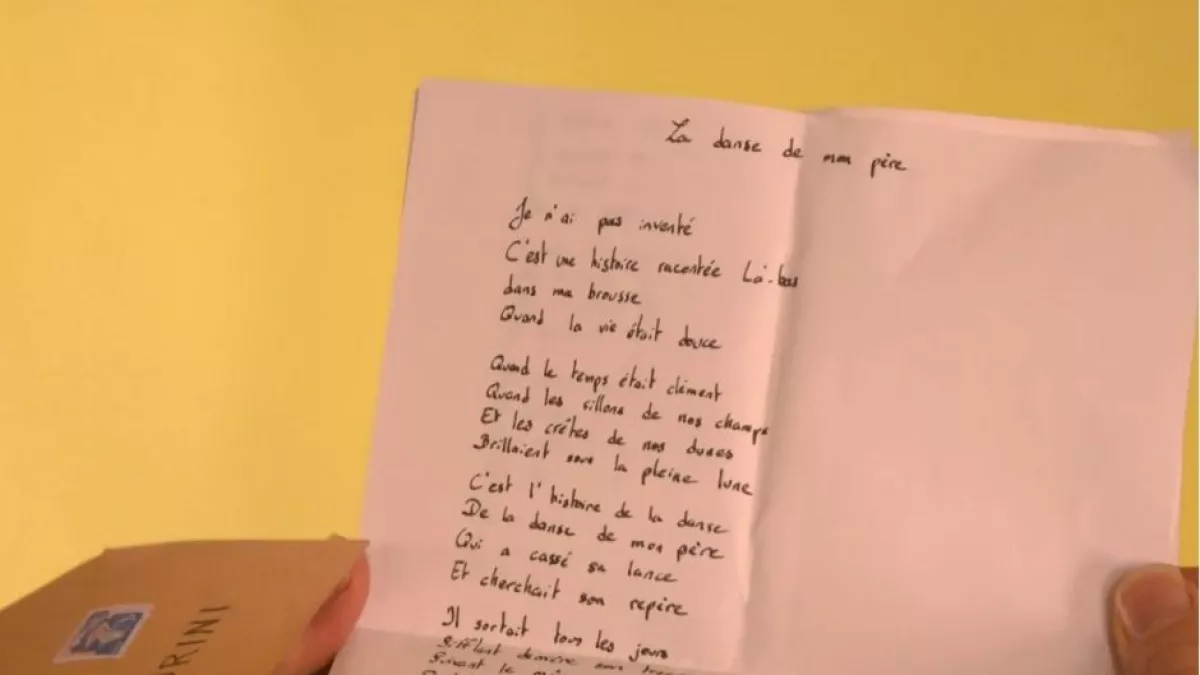 La danse de mon père
Je n'ai pas inventé
C'est une histoire racontée Là-bas
dans ma brousse
Quand la vie était douce
Quand le temps était clément
Quand les sillons de nos champs
Et les crêtes de nos dunes
Brillaient sous la pleine lune
C'est l'histoire de la danse
De la danse de mon père
Qui a cassé sa lance
Et cherchait son repère
Il sortait tous les jours
Sifflant derrière son
Suivant le
RINI